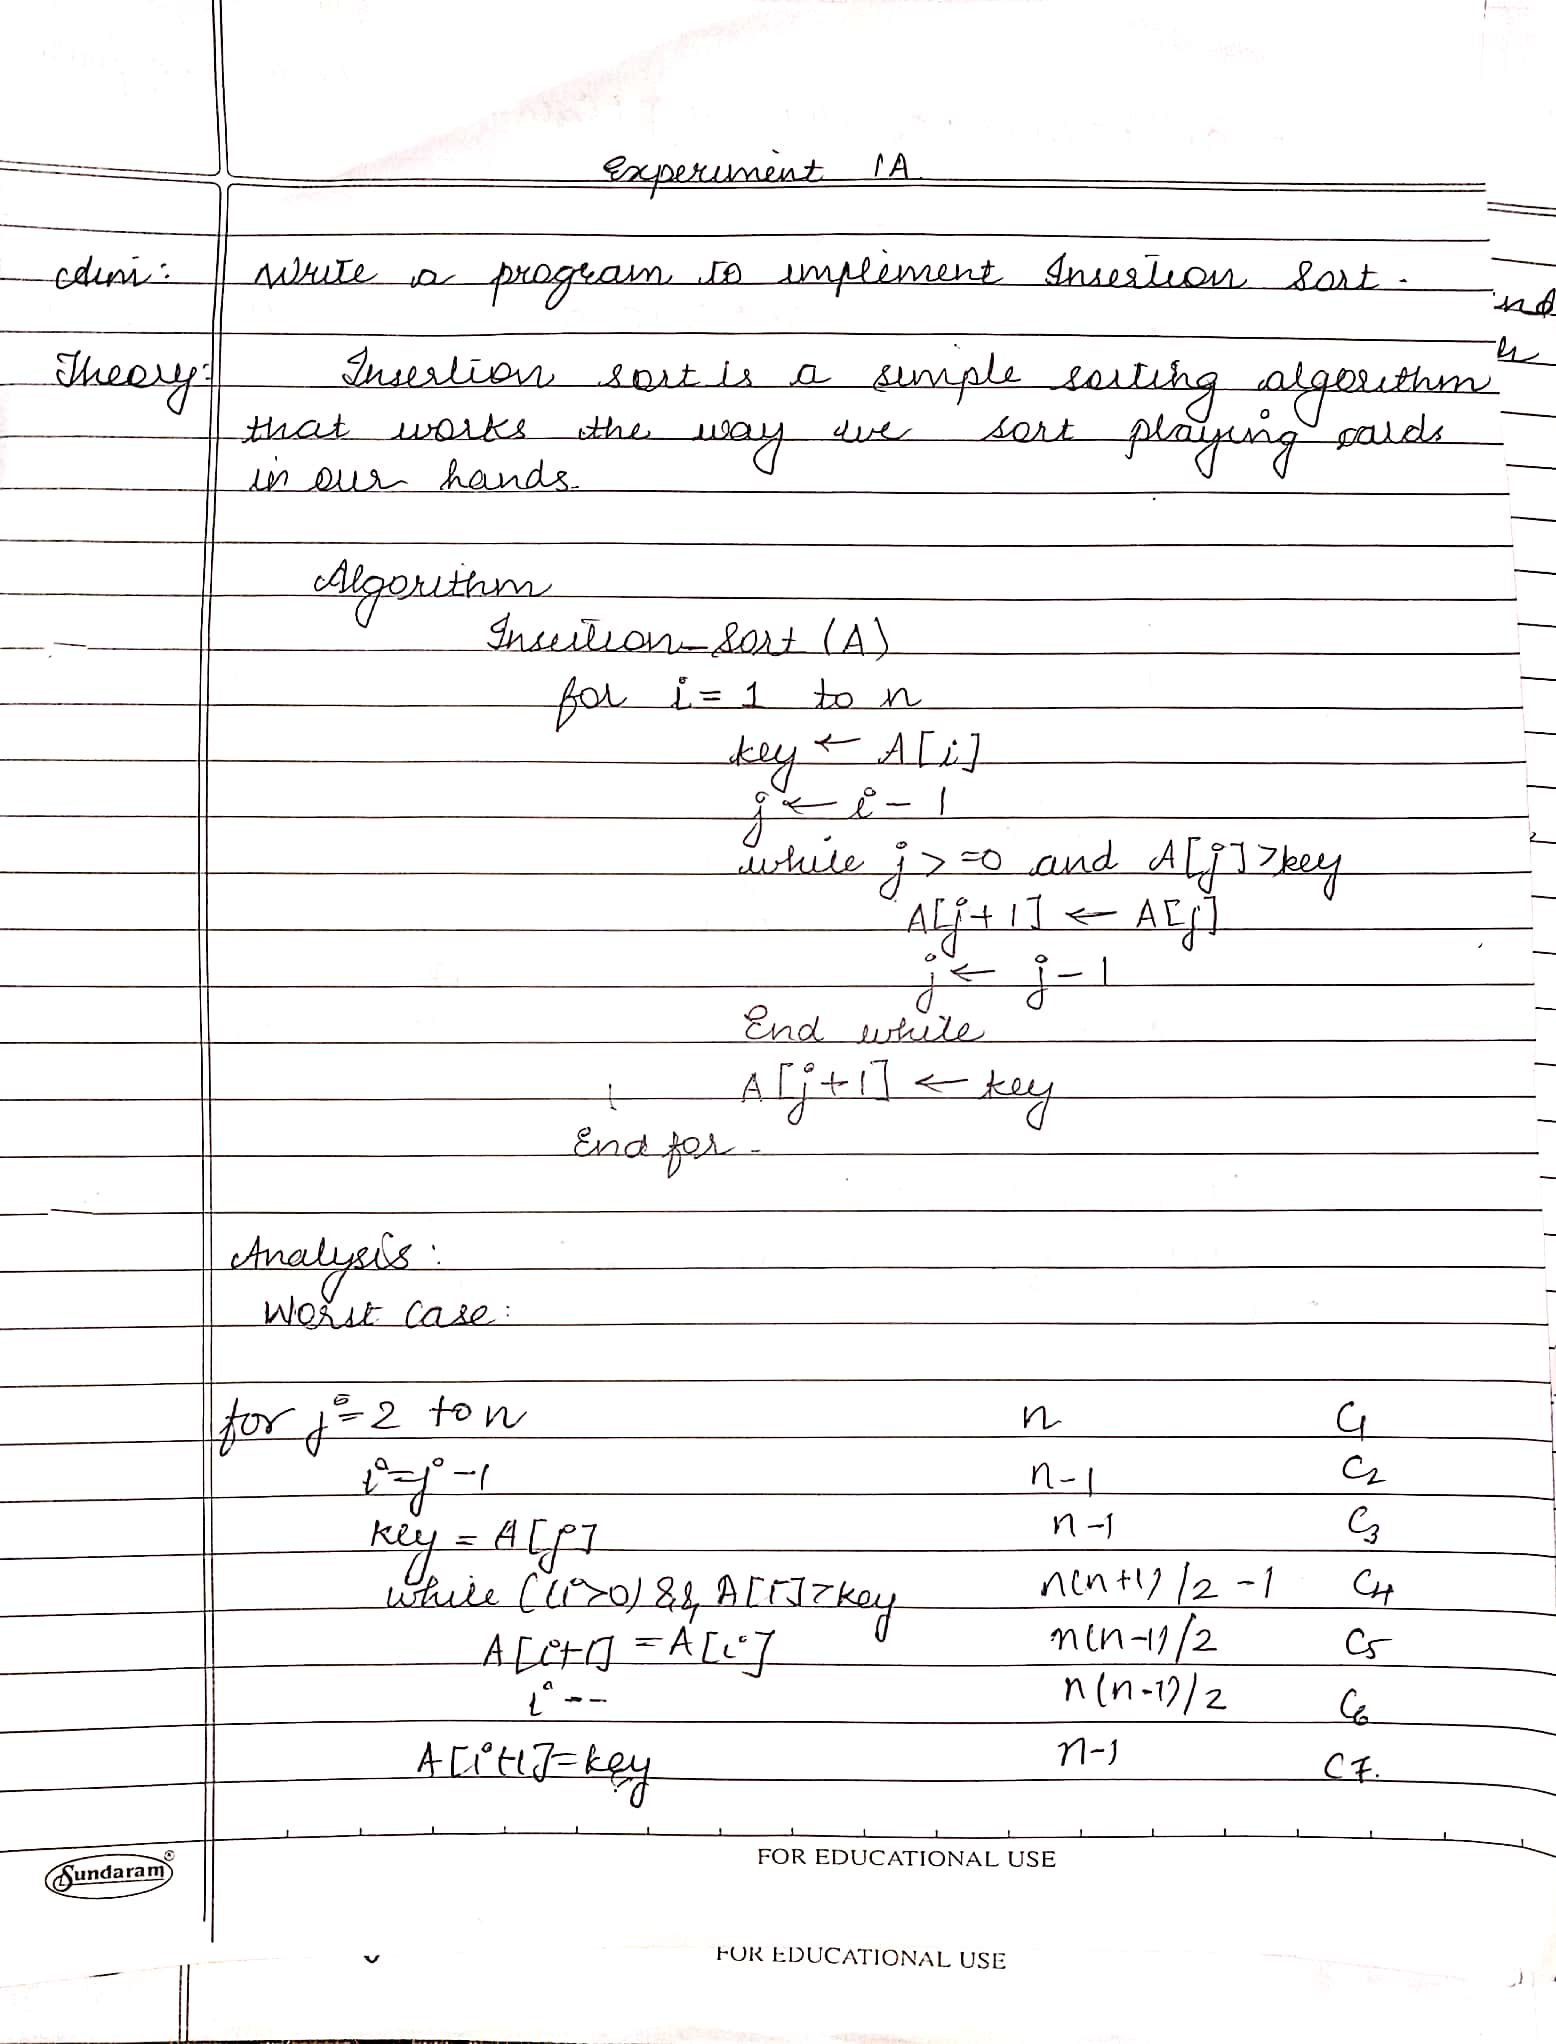 Experiment 1A
Aim: Write a program to implement Insertion Sort.
Theory: Insertion sort is a simple sorting algorithm
that works the way we sort playing cards
in our hands.
Algorithm
Insertion_Sort (A)
for i = 1 to n
key ← A[i]
j ← i - 1
while j >= 0 and A[j] > key
A[j+1] ← A[j]
j ← j - 1
End while
A[j+1] ← key
End for.
Analysis:
Worst Case:
for j = 2 to n n C1
i = j - 1 n-1 C2
key = A[j] n-1 C3
while ((i>0) && A[i]>key n(n+1)/2 - 1 C4
A[i+1] = A[i] n(n-1)/2 C5
i-- n(n-1)/2 C6
A[i+1] = key n-1 C7.
Sundaram®
FOR EDUCATIONAL USE
FOR EDUCATIONAL USE